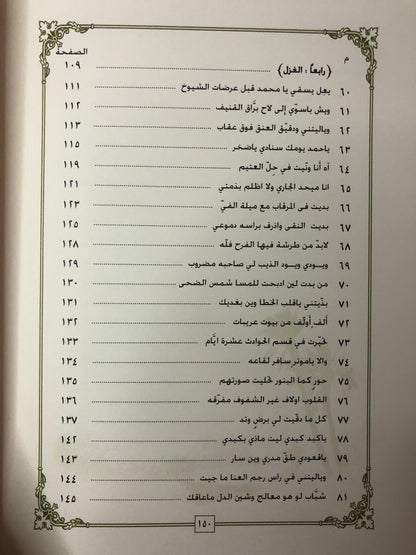 م الصفحة
﴿ رابعاً : الغزل ﴾ ١٠٩
٦٠ يعِل يسقي يا محمد قبل عرضات الشيوخ ١١١
٦١ ويش باسوّي إلى لاح برَّاق القنيف ١١٢
٦٢ وياليتني ودقيّق العنق فوق عقاب ١١٣
٦٣ ياحمد يومك سنادي ياضخر ١١٥
٦٤ آه أنا ونّيت في حِلّ العتيم ١١٩
٦٥ انا ميحد الجاري ولا اظلم بذمتي ١٢١
٦٦ بديت في المرقاب مع ميلة الفيّ ١٢٣
٦٧ بديت النقى واذرف براسه دموعي ١٢٥
٦٨ لابدّ من طرشة فيها الفرح فلّه ١٢٨
٦٩ ويـودي ويـود الذيب لي صاحبه مضروب ١٢٩
٧٠ من بدت لين ادبحت للمسا شمس الضحى ١٣٠
٧١ بدّيتني ياقلب الخطا وين بغديك ١٣١
٧٢ ألف أولّف من بيوت عريبات ١٣٢
٧٣ تحيّرت في قسم الحوادث عشرة ايَّام ١٣٣
٧٤ والا ياموتر سافر لقاعه ١٣٤
٧٥ حورٍ كما البنور تخليت صورتهم ١٣٥
٧٦ القلوب اولاف غير الشفوف مفرّقه ١٣٦
٧٧ كل ما دقيت لي برضٍ وتد ١٣٧
٧٨ ياكبد كبدي ليت ماذي بكبدي ١٤٢
٧٩ ياقعودي طقّ مدري وين سار ١٤٣
٨٠ وياليتني في راس رجم العنا ما جيت ١٤٤
٨١ شبَّاب لو هو معالج وشين الدل ماعافك ١٤٥
١٥٠